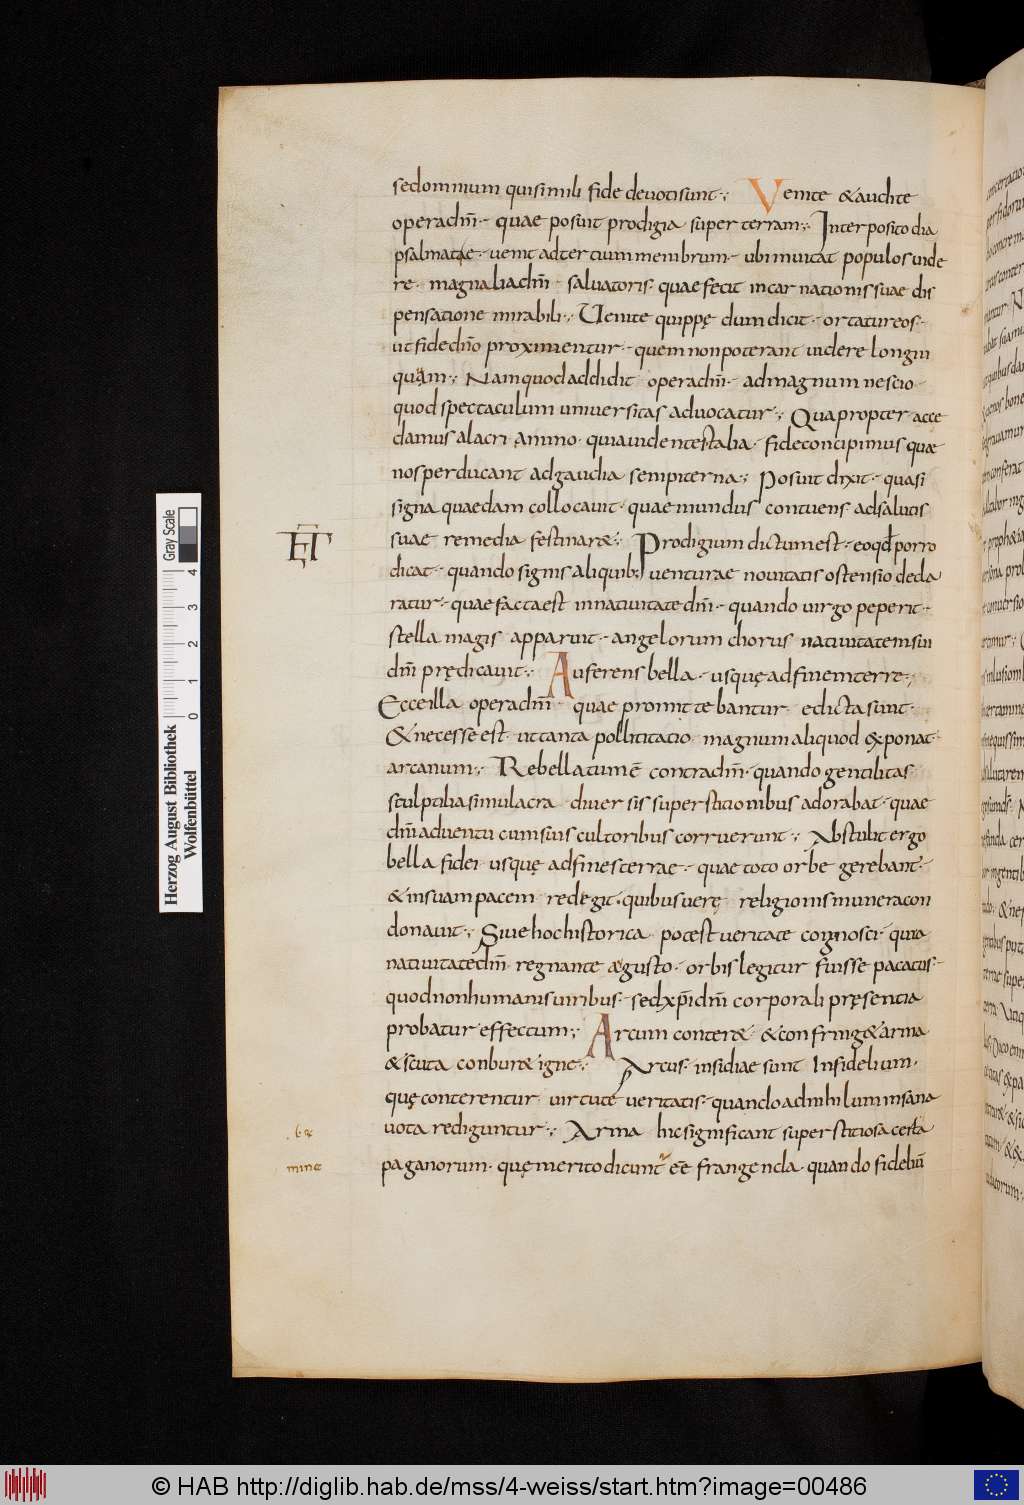 sed omnium qui simili fide devoti sunt·, Venite & audite
opera dm̄· quae posuit prodigia super terram·, Interposito dia
psalmatae· venit ad tertium membrum· ubi invitat populos vide
re· magnalia dm̄ salvatoris· quae fecit incarnationis suae dis
pensatione mirabili·, Venite quippę dum dicit· ortatur eos·
ut fide dn̄o proximentur· quem non poterant videre longin
quam·, Nam quod addidit opera dm̄· ad magnum nescio·
quod spectaculum universitas advocatur·, Quapropter acce
damus alacri animo· quia videntes talia· fide concipimus quae
nos perducant ad gaudia sempiterna·, Posuit dixit· quasi
signa quaedam collocavit· quae mundus contuens ad salutis
suae remedia festinar&·, Prodigium dictum est· eo qđ porro
dicat· quando signis aliquib; venturae novitatis ostensio decla
ratur· quae facta est in nativitate dm̄· quando virgo peperit·
stella magis apparuit· angelorum chorus nativitatem sui
dm̄ prędicavit·, Auferens bella· usquę ad finem terre·,
Ecce illa opera dm̄ quae promittebantur edicta sunt·
& necesse est· ut tanta pollicitatio magnum aliquod exponat·
arcanum·, Rebellatum ē contra dm̄· quando gentilitas
sculptilia simulacra diversis superstitionibus adorabat· quae
dm̄ adventu cum suis cultoribus corruerunt·, Abstulit ergo
bella fidei usquę ad fines terrae· quae toto orbe gerebant·
& in suam pacem redegit· quibus verę religionis munera con
donavit·, Sive hoc historica potest veritate cognosci· quia
nativitate dm̄ regnante agusto· orbis legitur fuisse pacatus·
quod non humanis viribus· sed xp̄i dm̄ corporali pręsentia
probatur effectum·, Arcum conter& & confring& arma
& scuta conbur& igne·, Arcus insidiae sunt Infidelium·
quę conterentur virtute veritatis· quando ad nihilum insana
vota rediguntur·, Arma hic significant superstitiosa certa
paganorum· quę merito dicunt ēē frangenda· quando fidelium̄
mine
Herzog August Bibliothek
Wolfenbüttel
0 1 2 3 4
Gray Scale
© HAB http://diglib.hab.de/mss/4-weiss/start.htm?image=00486